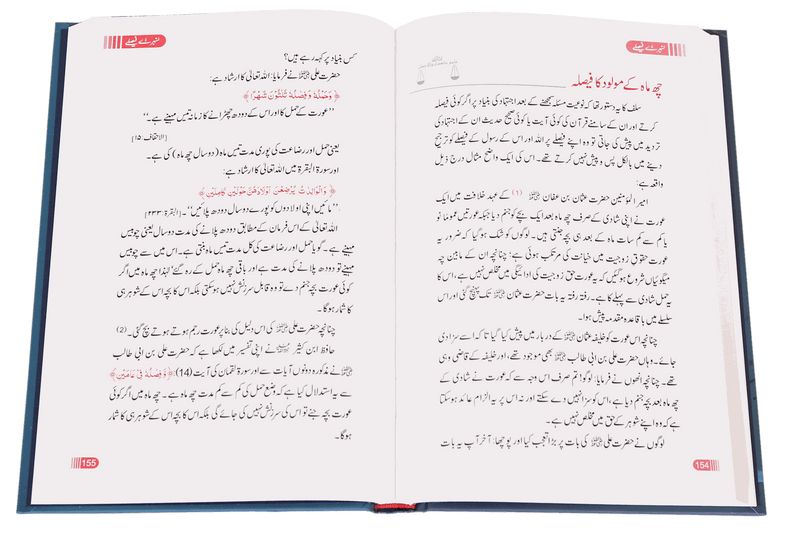 سنہرے فیصلے
چھ ماہ کے مولود کا فیصلہ
سلف کا یہ دستور تھا کہ نوعیت مسئلہ سمجھنے کے بعد اجتہاد کی بنیاد پر اگر کوئی فیصلہ
کرتے اور ان کے سامنے قرآن کی کوئی آیت یا کوئی صحیح حدیث ان کے اجتہاد کی
تردید میں پیش کی جاتی تو وہ اپنے فیصلے پر اللہ اور اس کے رسول کے فیصلے کو ترجیح
دینے میں بالکل پس و پیش نہیں کرتے تھے۔ اس کی ایک واضح مثال درج ذیل
واقعہ ہے:
امیر المؤمنین حضرت عثمان بن عفان ؓ (۱) کے عہد خلافت میں ایک
عورت نے اپنی شادی کے صرف چھ ماہ بعد ایک بچے کو جنم دیا جبکہ عورتیں عموماً نو
یا کم سے کم سات ماہ کے بعد ہی بچہ جنتی ہیں۔ لوگوں کو شک ہو گیا کہ ضرور یہ
عورت حقوق زوجیت میں خیانت کی مرتکب ہوئی ہے؛ چنانچہ ان کے مابین چہ
میگوئیاں شروع ہو گئیں کہ یہ عورت حق زوجیت کی ادائیگی میں مخلص نہیں ہے، اس کا
یہ حمل شادی سے پہلے کا ہے۔ رفتہ رفتہ یہ بات حضرت عثمان ؓ تک پہنچ گئی اور اس
سلسلے میں باقاعدہ مقدمہ پیش ہوا۔
چنانچہ اس عورت کو خلیفہ عثمان ؓ کے دربار میں پیش کیا گیا تاکہ اسے سزا دی
جائے۔ وہاں حضرت علی بن ابی طالب ؓ بھی موجود تھے، اور خلیفہ کے قاضی وہی
تھے۔ چنانچہ انھوں نے فرمایا: لوگو! تم صرف اس وجہ سے کہ عورت نے شادی کے
چھ ماہ بعد بچہ جنم دیا ہے، اس کو سزا نہیں دے سکتے اور نہ اس پر یہ الزام عائد ہو سکتا
ہے کہ وہ اپنے شوہر کے حق میں مخلص نہیں ہے۔
لوگوں نے حضرت علی ؓ کی بات پر بڑا تعجب کیا اور پوچھا: آخر آپ یہ بات
154
سنہرے فیصلے
کس بنیاد پر کہہ رہے ہیں؟
حضرت علی ؓ نے فرمایا: اللہ تعالیٰ کا ارشاد ہے:
﴿ وَحَمْلُهُ وَفِصَالُهُ ثَلَاثُونَ شَهْرًا ﴾
’’عورت کے حمل کا اور اس کے دودھ چھڑانے کا زمانہ تیس مہینے ہے۔‘‘
[الأحقاف: ۱۵]
یعنی حمل اور رضاعت کی پوری مدت تیس ماہ (دو سال چھ ماہ) کی ہے۔
اور سورۃ البقرۃ میں اللہ تعالیٰ کا ارشاد ہے:
﴿ وَالْوَالِدَاتُ يُرْضِعْنَ أَوْلَادَهُنَّ حَوْلَيْنِ كَامِلَيْنِ ﴾
’’مائیں اپنی اولادوں کو پورے دو سال دودھ پلائیں‘‘۔ [البقرة: ۲۳۳]
اللہ تعالیٰ کے اس فرمان کے مطابق دودھ پلانے کی مدت دو سال یعنی چوبیس
مہینے ہے۔ گویا حمل اور رضاعت کی کل مدت تیس ماہ بنتی ہے۔ اس میں سے چوبیس
مہینے تو دودھ پلانے کی مدت ہے اور باقی چھ ماہ حمل کے رہ گئے؛ لہٰذا چھ ماہ میں اگر
کوئی عورت بچہ جنم دے تو وہ قابل سرزنش نہیں ہو سکتی بلکہ اس کا بچہ اس کے شوہر ہی
کا شمار ہوگا۔
چنانچہ حضرت علی ؓ کی اس دلیل کی بنا پر عورت رجم ہوتے ہوتے بچ گئی۔ (2)
حافظ ابن کثیر ؒ نے اپنی تفسیر میں لکھا ہے کہ حضرت علی بن ابی طالب
ؓ نے مذکورہ دونوں آیات سے اور سورۃ لقمان کی آیت (14): ﴿ وَفِصَالُهُ فِي عَامَيْنِ ﴾
سے یہ استدلال کیا ہے کہ وضع حمل کی کم سے کم مدت چھ ماہ ہے۔ چھ ماہ میں اگر کوئی
عورت بچہ جنے تو اس کی سرزنش نہیں کی جائے گی بلکہ اس کا بچہ اس کے شوہر ہی کا شمار
ہوگا۔
155